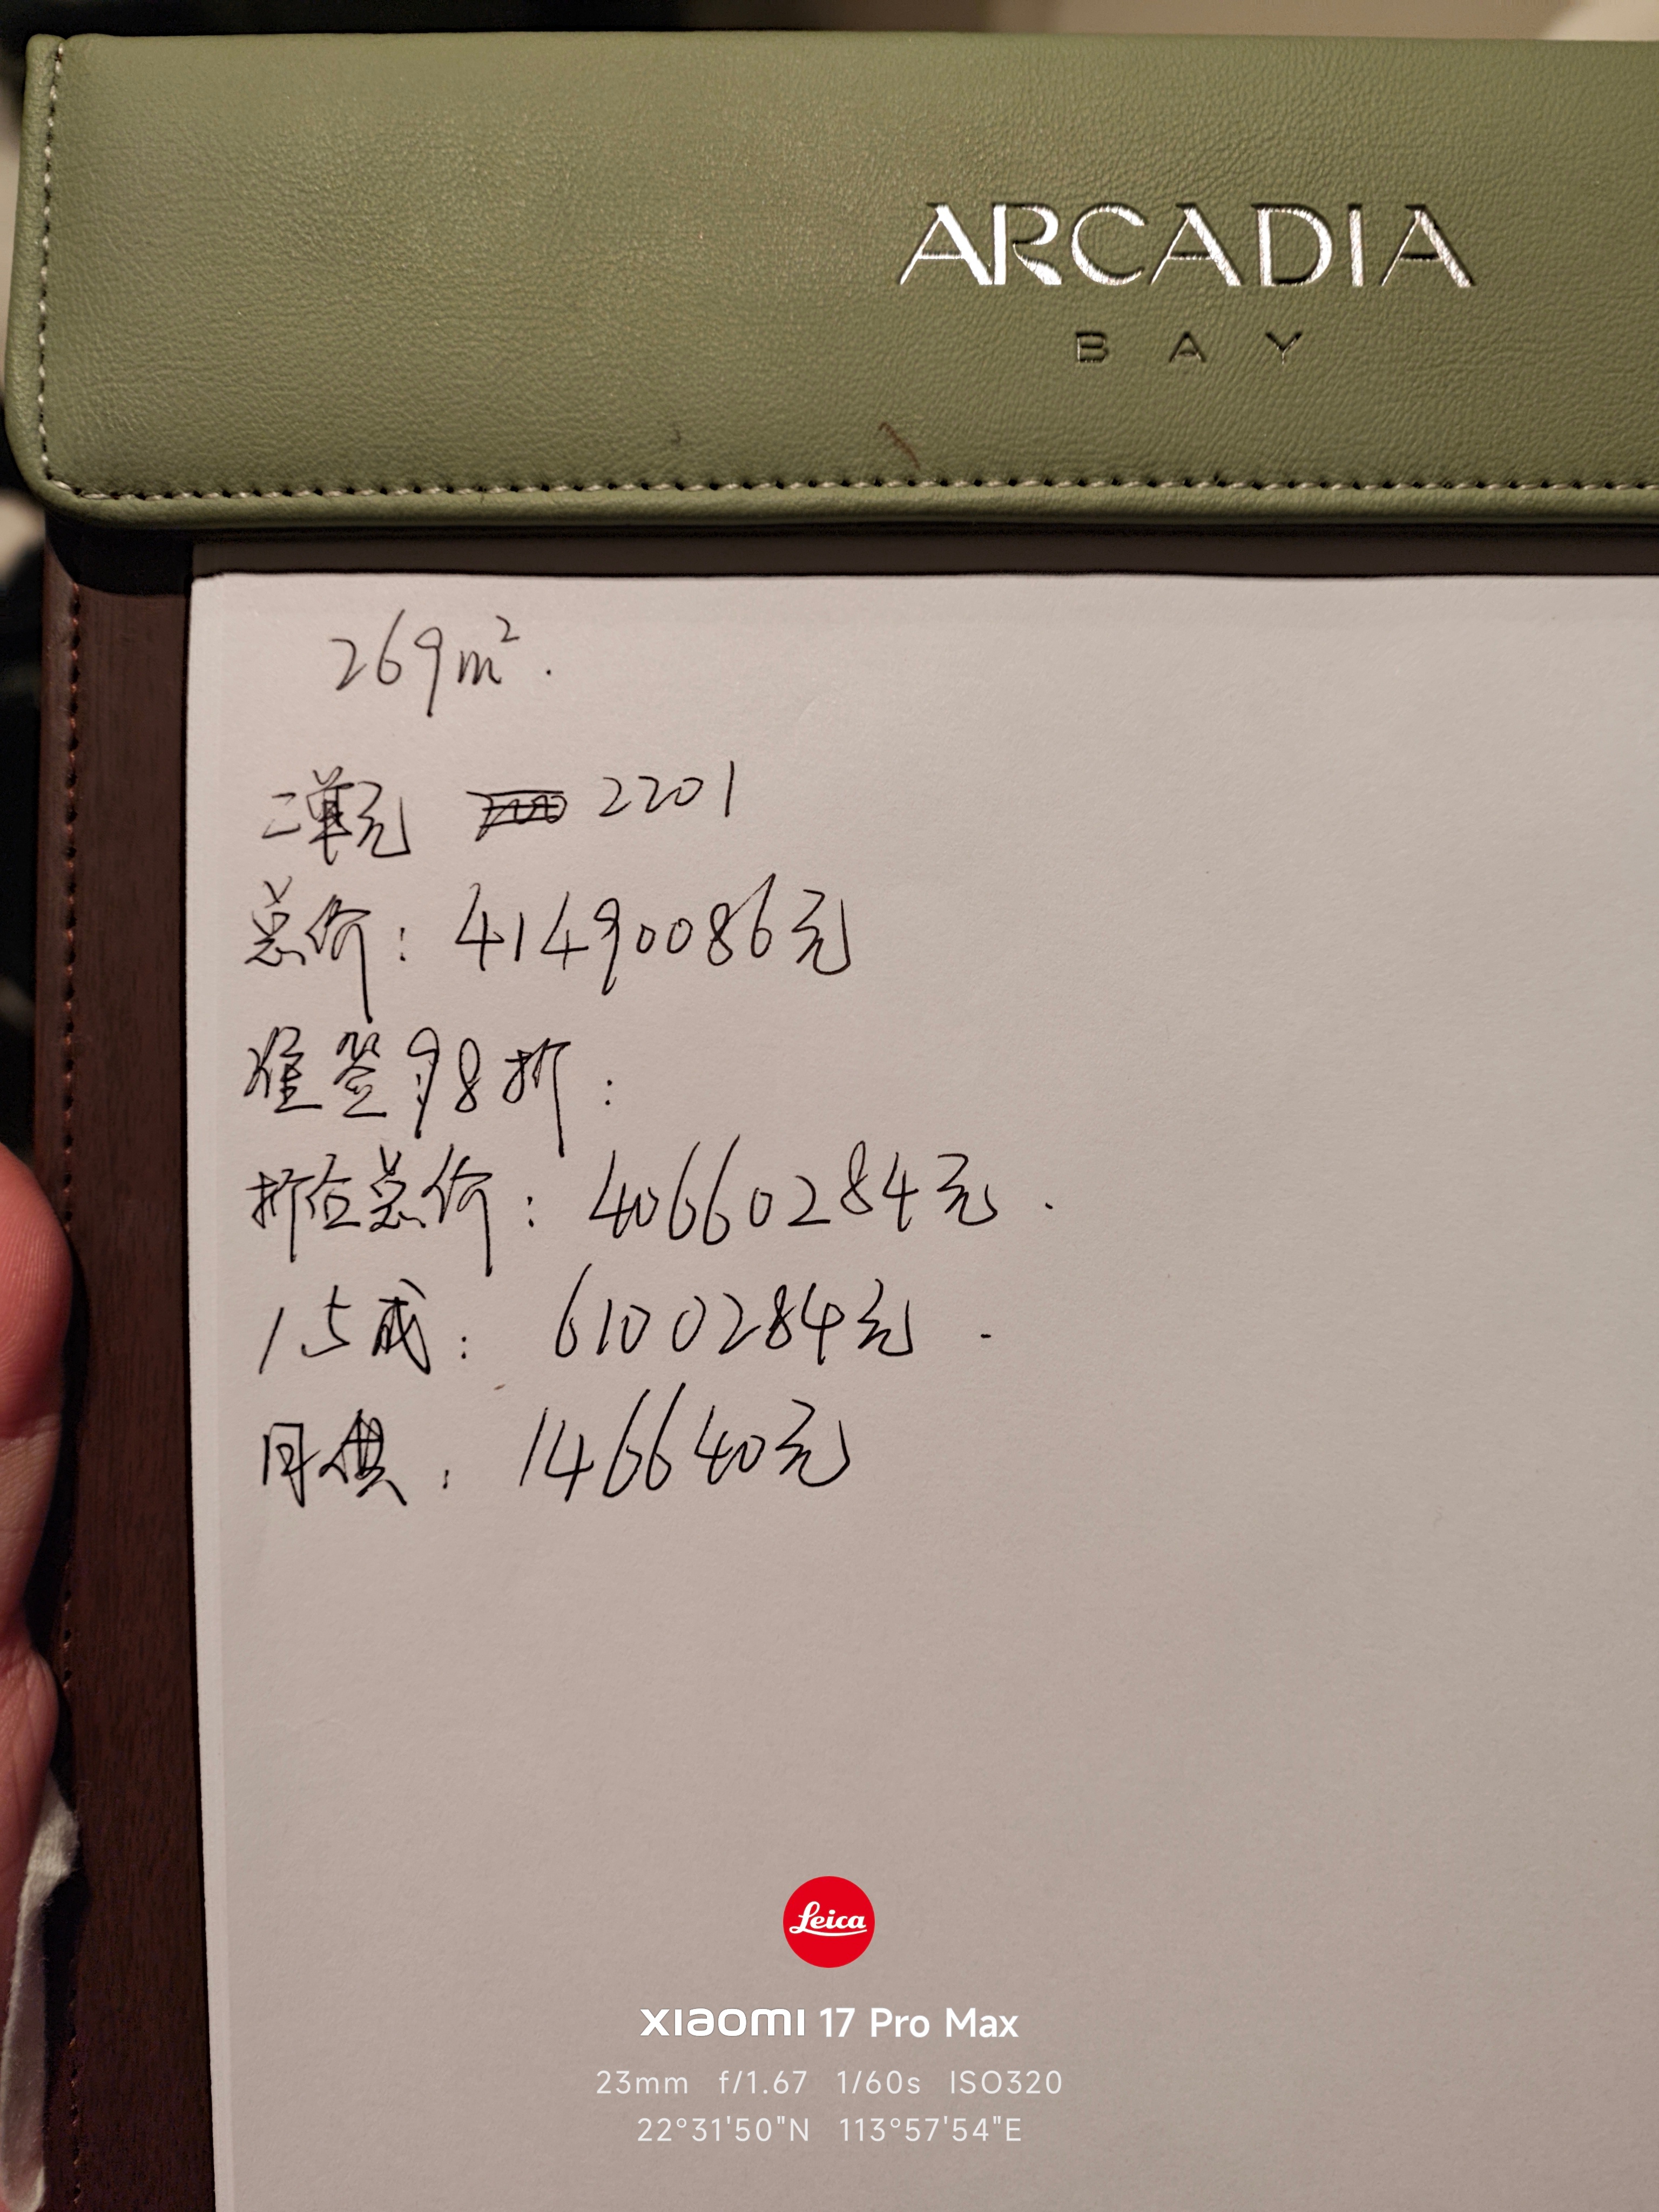 ARCADIA
BAY
269m².
二单元 2201
总价：41490086元
准签98折：
折后总价：40660284元.
15成：6100284元.
月供：146640元
Leica
xiaomi 17 Pro Max
23mm f/1.67 1/60s ISO320
22°31'50"N 113°57'54"E